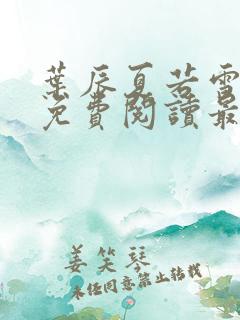 葉辰夏若雪
免費閱讀最
姜笑琴
未经同意禁止转载